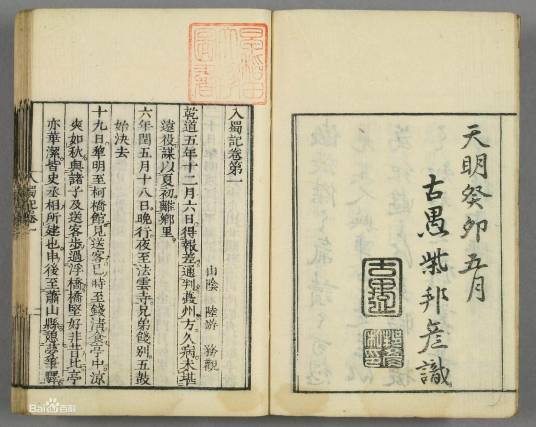 天明癸卯五月
古愚柴邦彥識
古愚
入蜀記卷第一
山陰 陸游 務觀
乾道五年十二月六日得報差通判夔州方久病未堪
遠役謀以夏初離鄉里
六年閏五月十八日晚行夜至法雲寺兄弟餞別五鼓
始決去
十九日黎明至柯橋館見送客巳時至錢清食亭中涼
爽如秋與諸子及送客步過浮橋橋堅好非昔比亭
亦華潔皆史丞相所建也申後至蕭山縣憩夢筆驛
入蜀記卷一
Bai百科